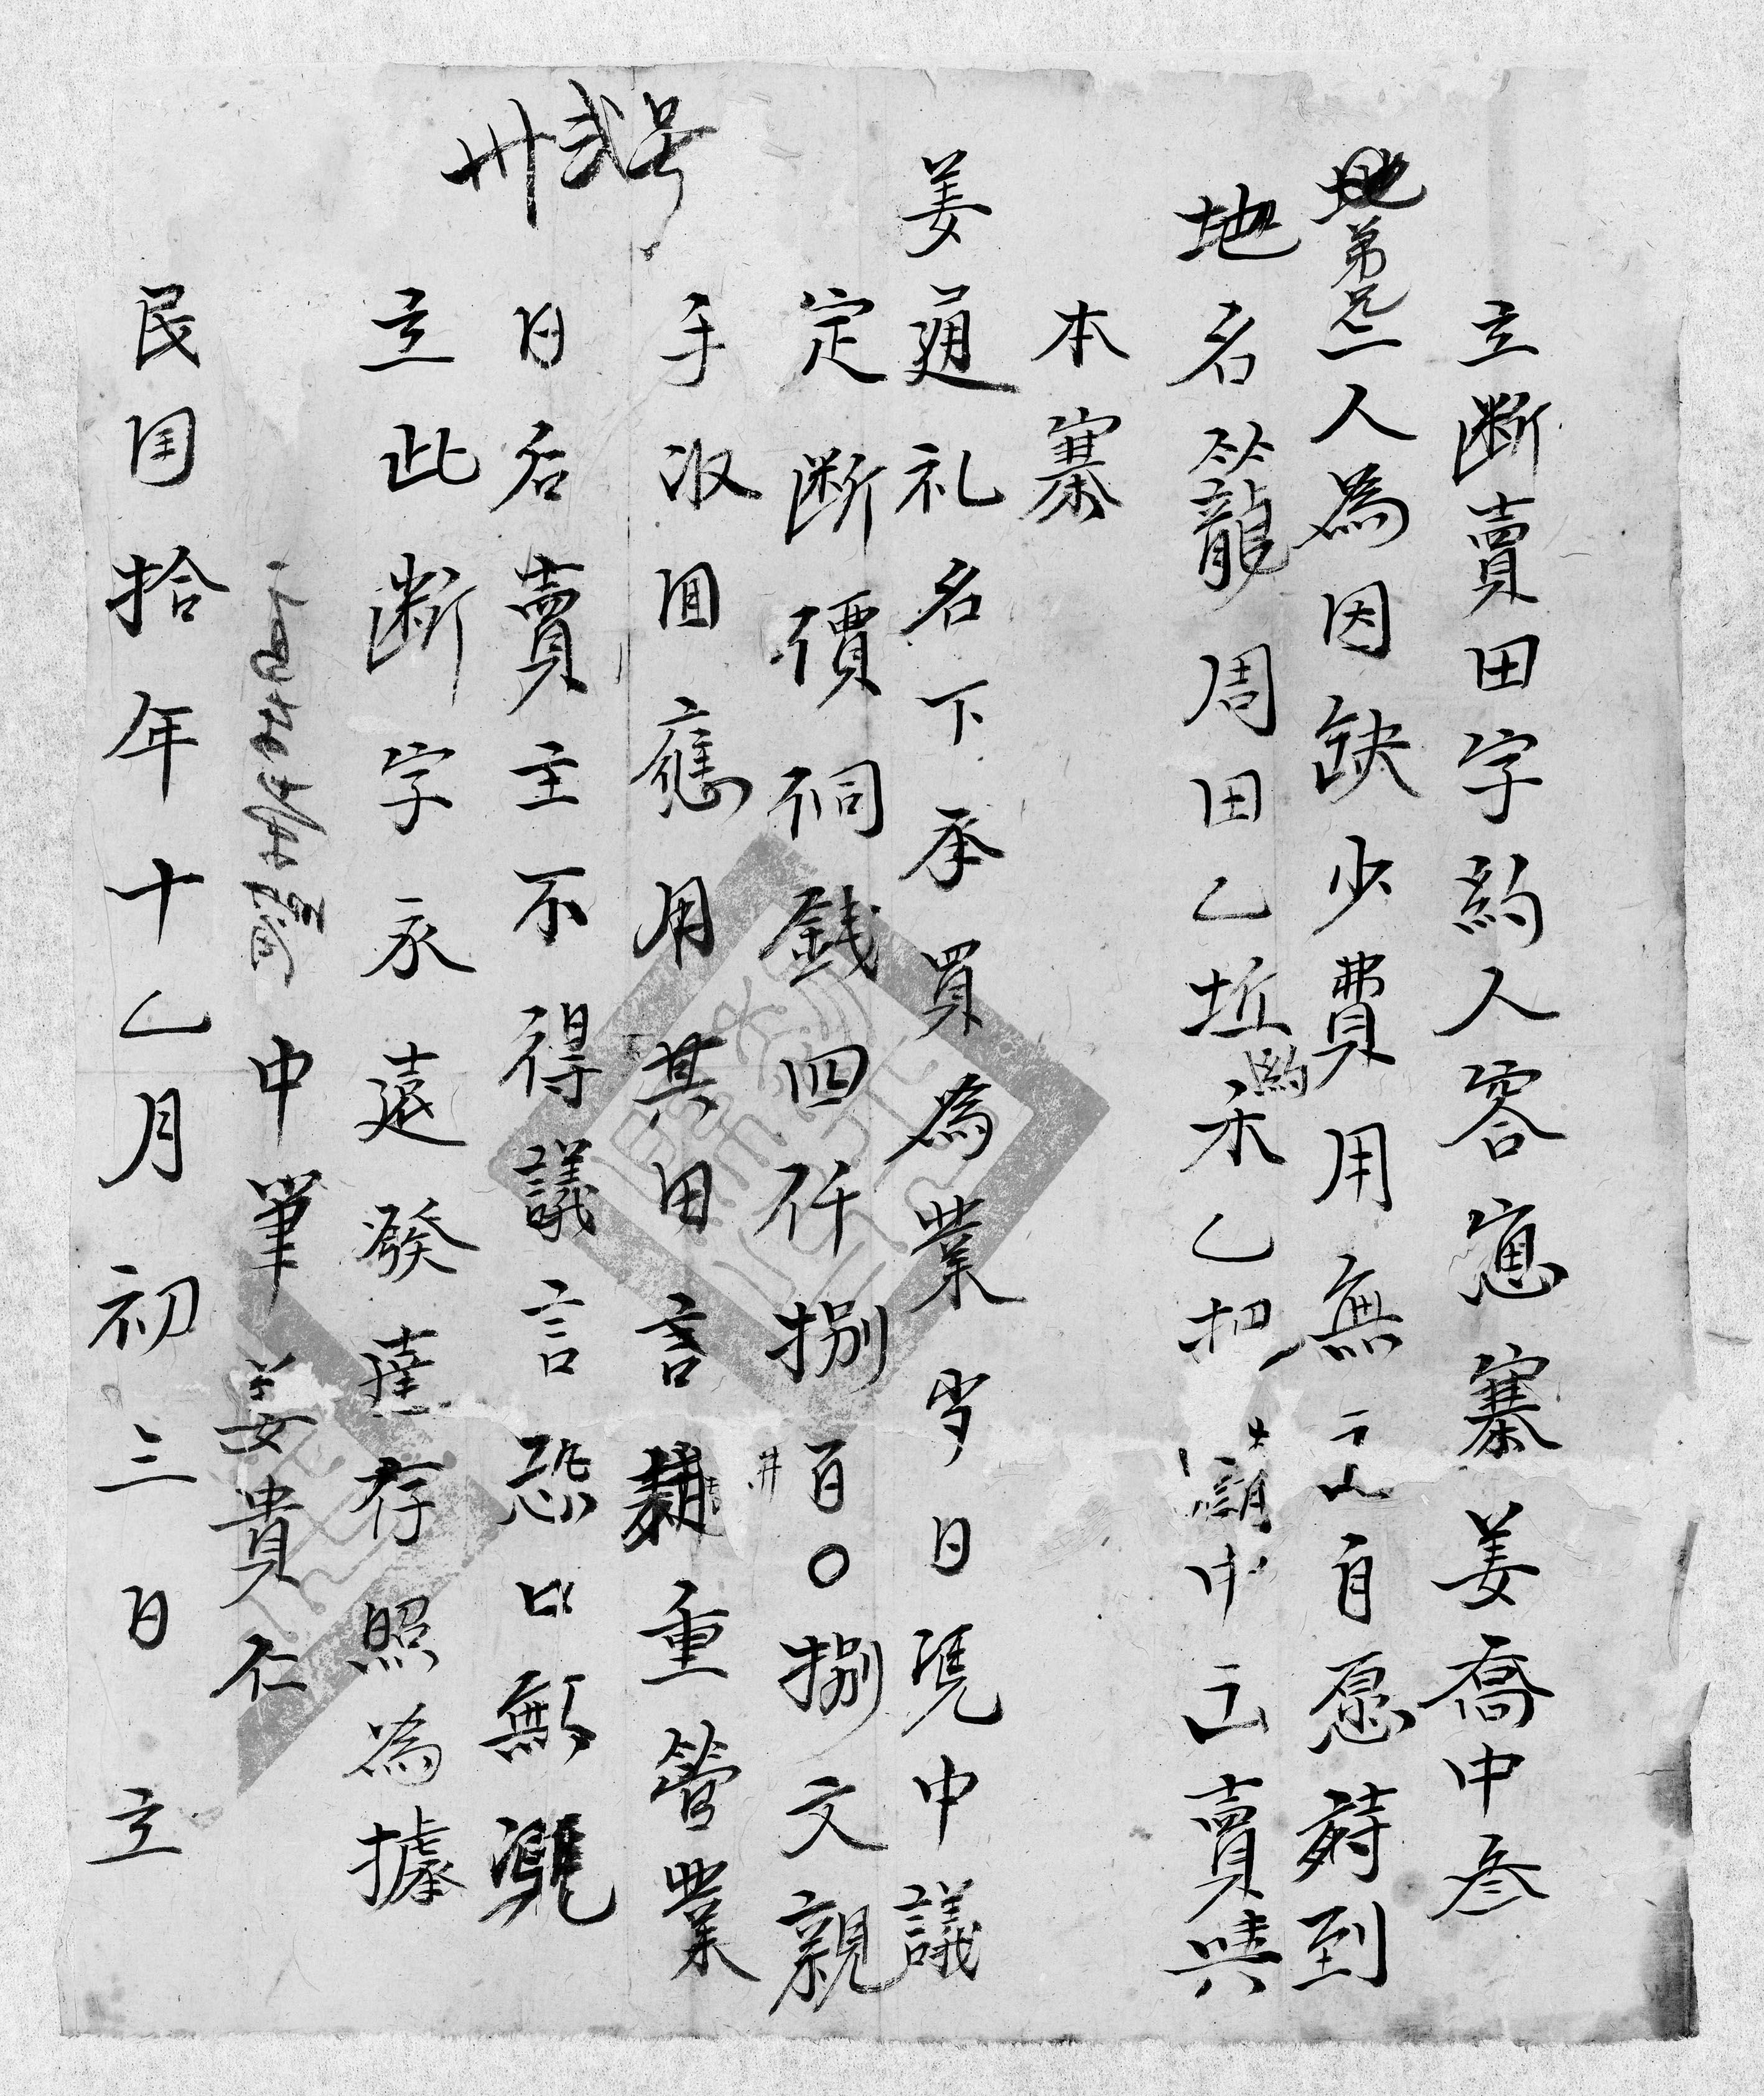 立断賣田字約人容窻寨姜喬中彥
弟兄二人為因缺少費用無出自愿蒋到
地名籠周田乙坵約禾乙把請中出賣與
本寨
姜通礼名下承買為業當日凴中議
定断價銅銭四仟捌百〇捌文親
手収囬應用其田言耕重管業
日后賣主不得議言恐口無凴
立此断字永遠發達存照為據
卅弍号
中筆姜貴仁
民国拾年十乙月初三日立